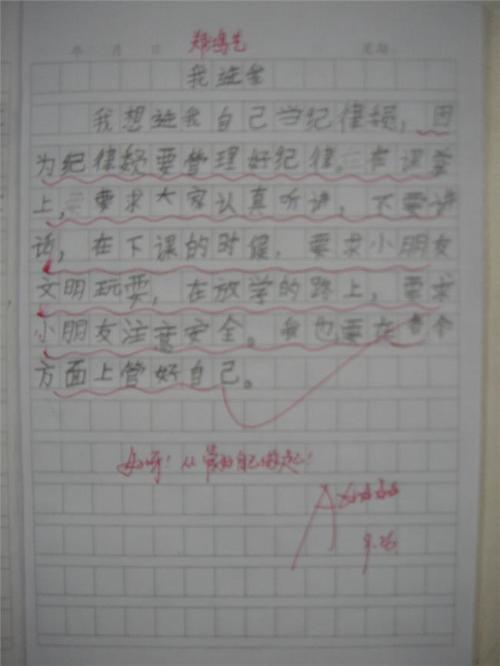 年 月 日 郑鸿艺 星期
我选我
我想选我自己当纪律员，因
为纪律员要管理好纪律。在课堂
上，要求大家认真听讲，不要讲
话，在下课的时候，要求小朋友
文明玩耍，在放学的路上，要求
小朋友注意安全。我也要在各个
方面上管好自己。
好呀！从管好自己做起！
A
9.26